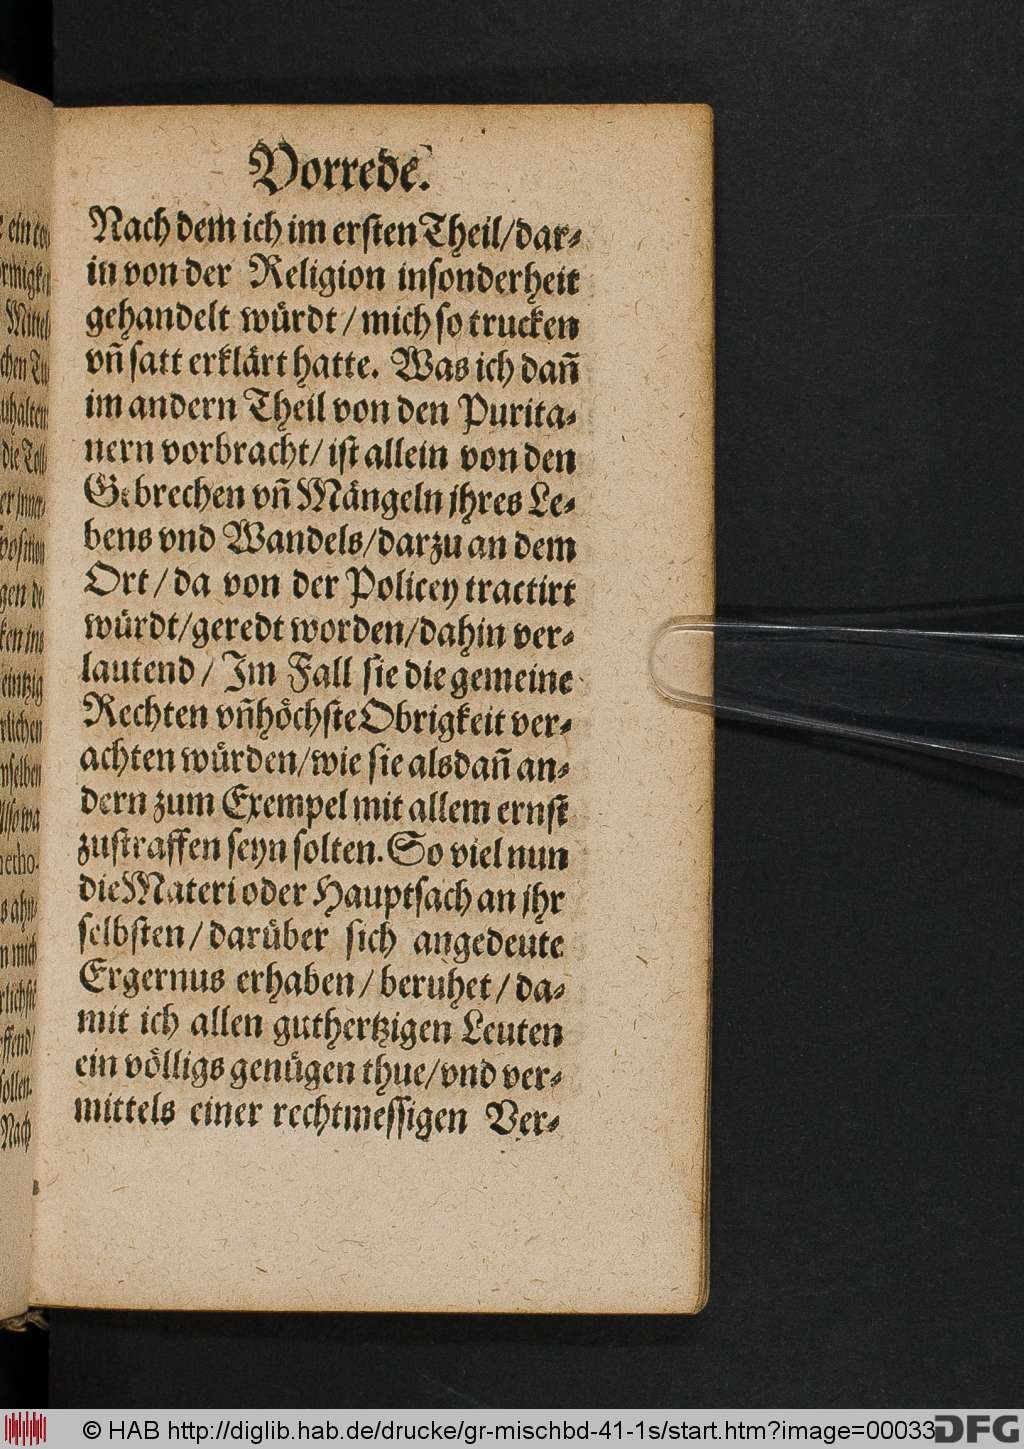 Vorrede.
Nach dem ich im ersten Theil/dar-
in von der Religion insonderheit
gehandelt würdt/mich so trucken
vñ satt erklärt hatte. Was ich dañ
im andern Theil von den Purita-
nern vorbracht/ist allein von den
Gebrechen vñ Mängeln jhres Le-
bens vnd Wandels/darzu an dem
Ort/da von der Policey tractirt
würdt/geredt worden/dahin ver-
lautend/Im Fall sie die gemeine
Rechten vñ höchste Obrigkeit ver-
achten würden/wie sie alsdañ an-
dern zum Exempel mit allem ernst
zustraffen seyn solten. So viel nun
die Materi oder Hauptsach an jhr
selbsten/darüber sich angedeute
Ergernus erhaben/beruhet/da-
mit ich allen guthertzigen Leuten
ein völligs genügen thue/vnd ver-
mittels einer rechtmessigen Ver-
© HAB http://diglib.hab.de/drucke/gr-mischbd-41-1s/start.htm?image=00033
DFG